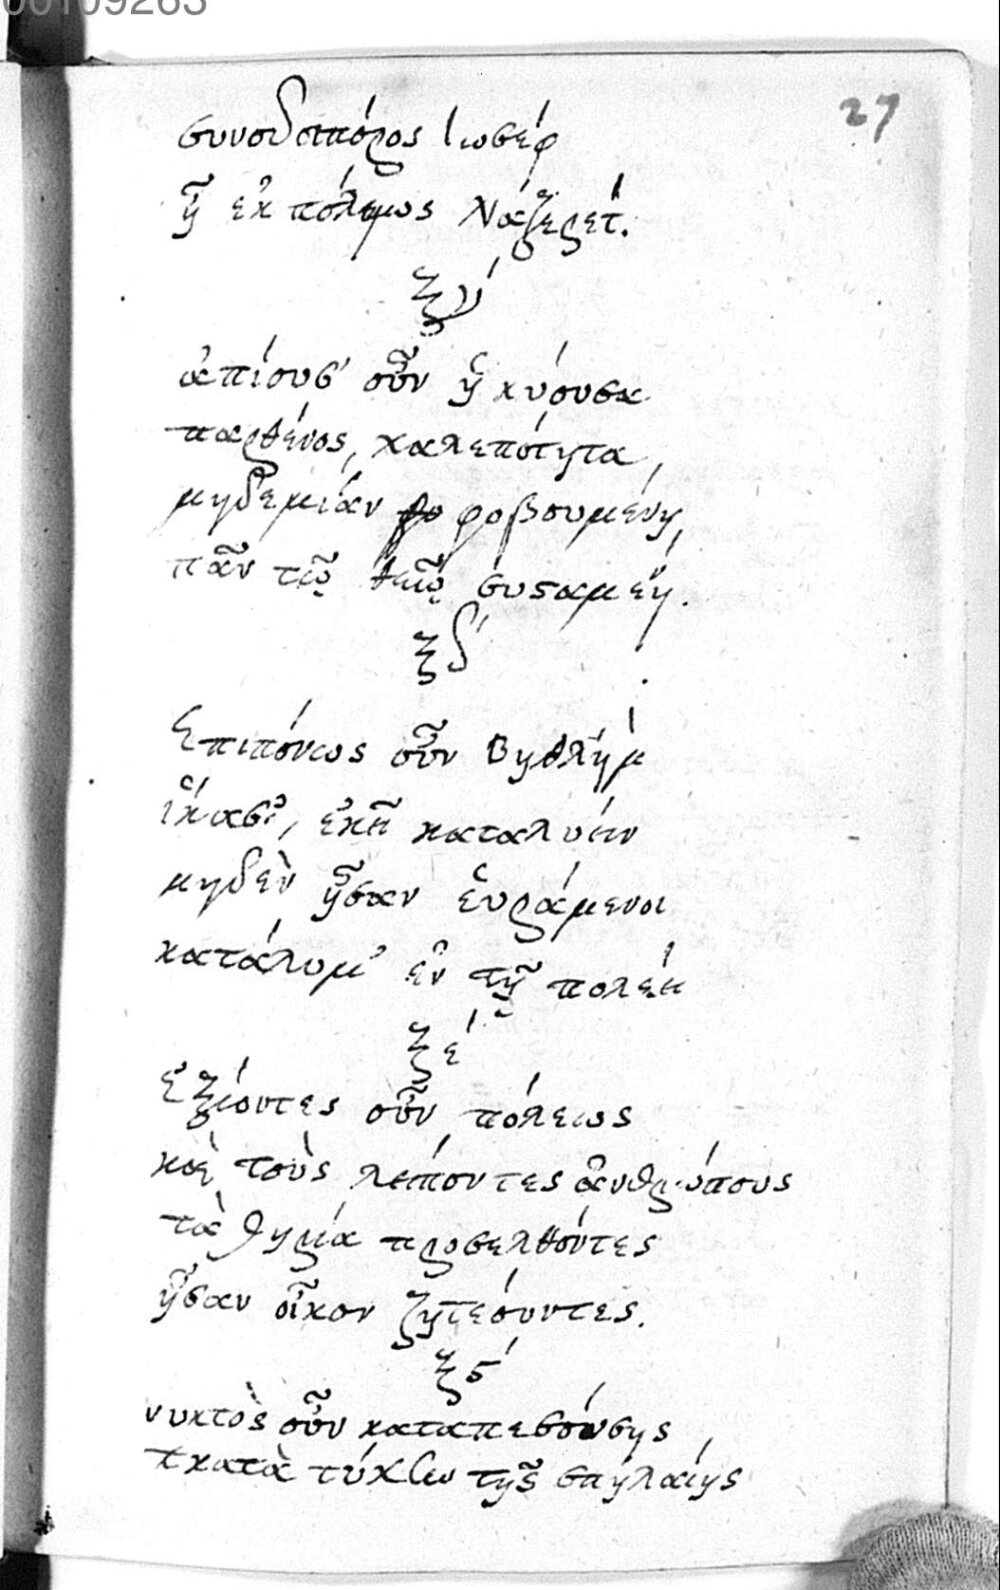 00109263
27
συνοδοιπόρος Ἰωσέφ
ἦ ἐκ πόλεμως Νάζερέτ.
ξγ´
ἀπίουσ' οὖν ἡ κύουσα
παρθένος, χαλεπότητα,
μηδεμίαν φοβουμένη,
πᾶν τῷ θείῳ συσαμένη.
ξδ´
Ἐπιπόνως οὖν Βηθλήμ
ἵκασι, ἐκεῖ καταλύειν
μηδὲν ἦσαν ἑυράμενοι
κατάλυμ' ἐν τῇ πολέει
ξε´
Ἐξιόντες οὖν πόλεως
καὶ τοὺς λείποντες ἀνθρώπους
τὰ θηρία προσελθόντες
ἦσαν οἶκον ζητεόυντες.
ξϛ´
νυκτὸς οὖν καταπεσούσης
κατὰ τύχην τῆς σπηλαίης